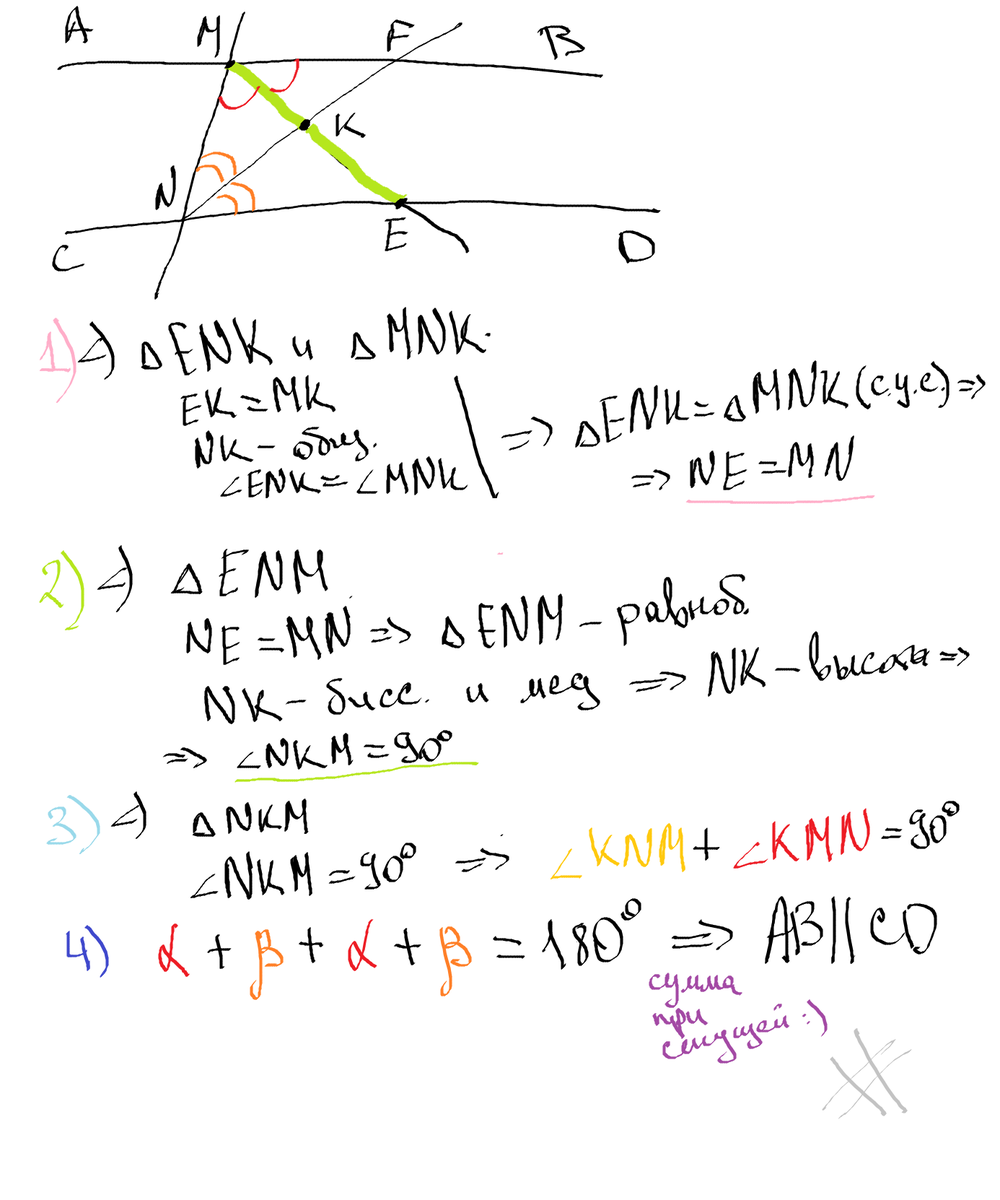 A M F B
K
N
C E D
1) △ENK и △MNK.
EK = MK
NK – общ.
∠ENK = ∠MNK
=> △ENK = △MNK (с.у.с) =>
=> NE = MN
2) △ENM
NE = MN => △ENM – равноб.
NK – бисс. и мед => NK – высота =>
=> ∠NKM = 90°
3) △NKM
∠NKM = 90° => ∠KNM + ∠KMN = 90°
4) α + β + α + β = 180° => AB || CD
сумма
при
секущей :)